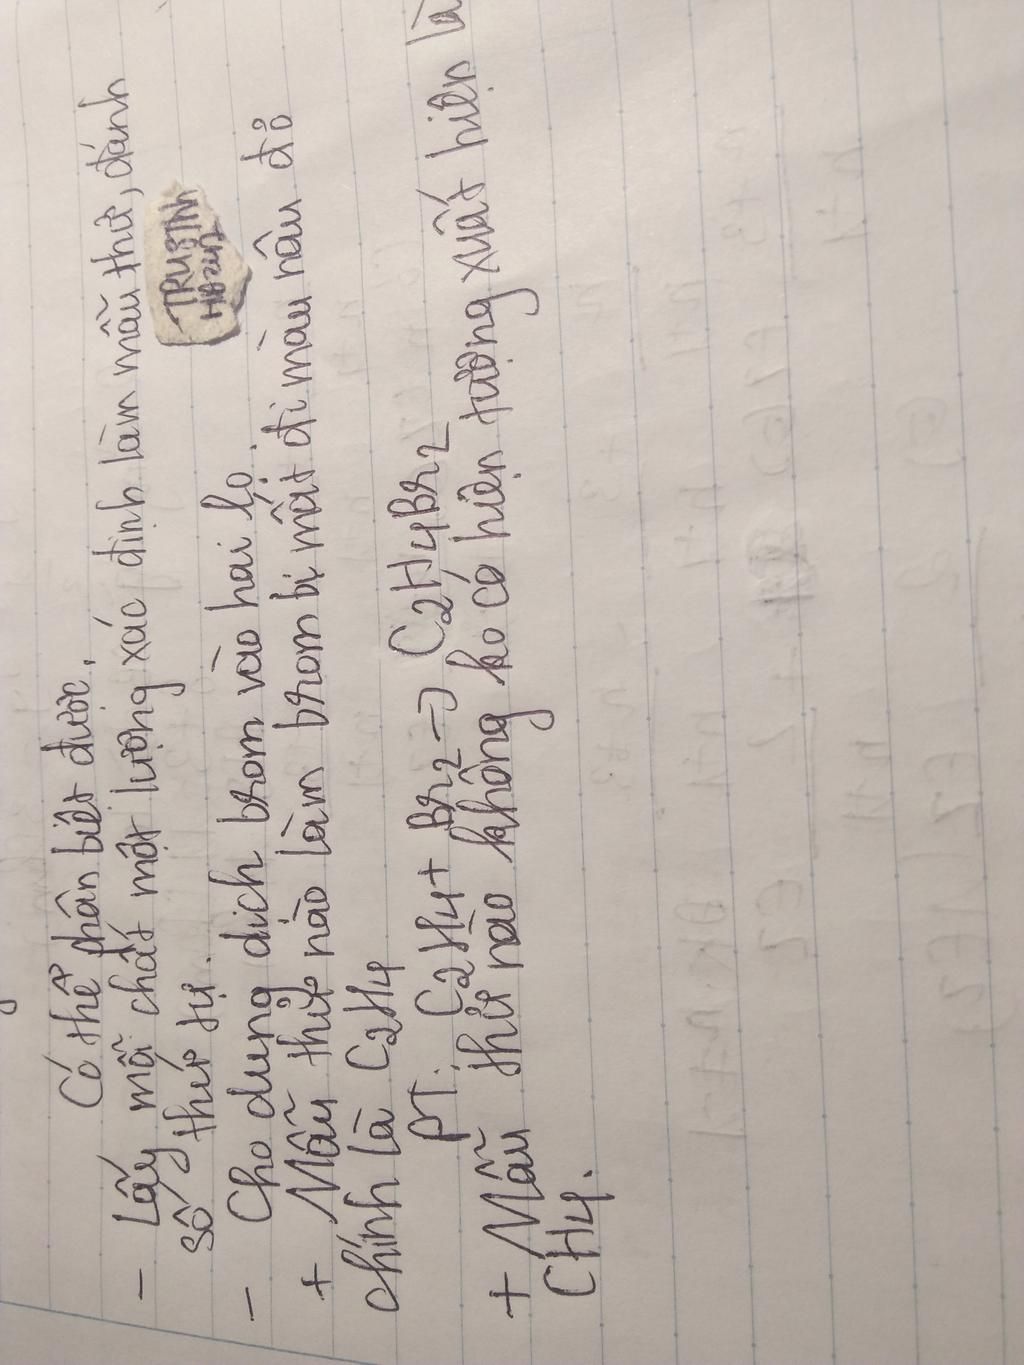 Có thể phân biệt được.
- Lấy mỗi chất một lượng xác định làm mẫu thử, đánh
số thứ tự.
TRUSTNH
- Cho dung dich brom vào hai lọ.
+ Mẫu thử nào làm brom bị mất đi màu nâu đỏ
chính là C2H4
PT: C2H4 + Br2 -> C2H4Br2
+ Mẫu thử nào không ko có hiện tượng xuất hiện là
CH4.